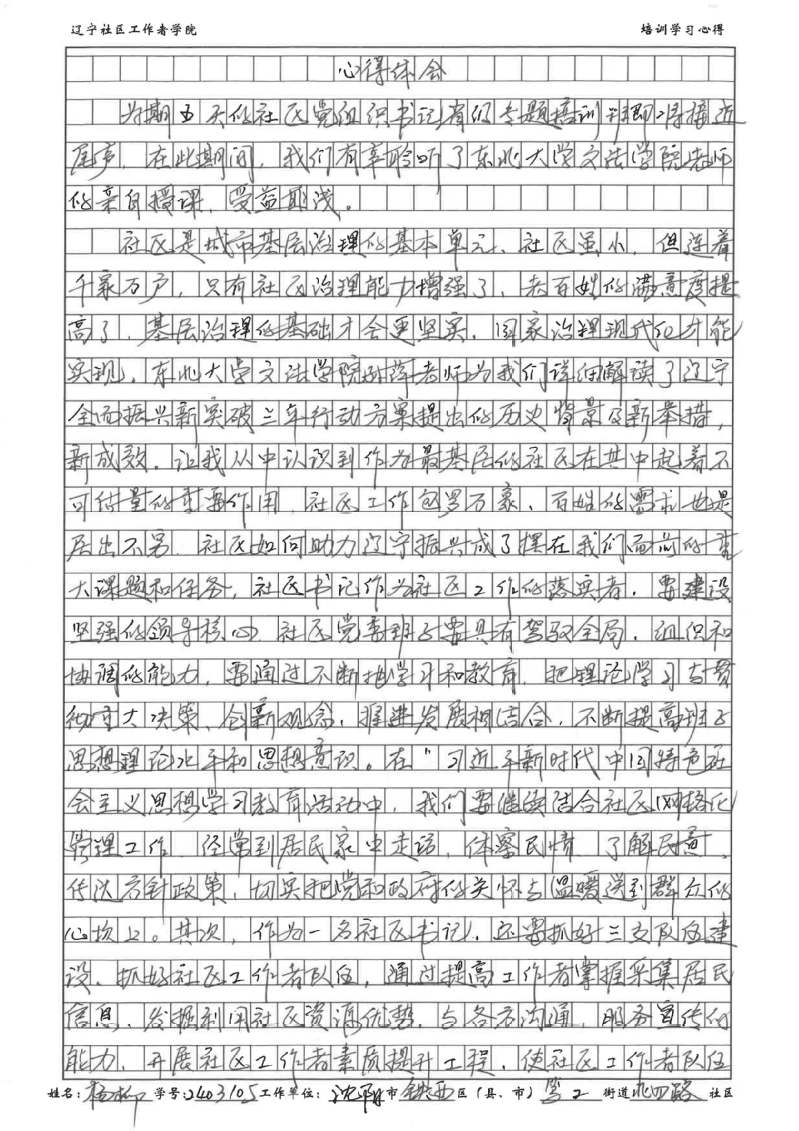 辽宁社区工作者学院 培训学习心得
心得体会
为期五天的社区党组织书记省级专题培训班即将接近
尾声，在此期间，我们有幸聆听了东北大学文法学院老师
的亲自授课，受益匪浅。
社区是城市基层治理的基本单元、社区虽小，但连着
千家万户，只有社区治理能力增强了，老百姓的满意度提
高了，基层治理的基础才会更坚实，国家治理现代化才能
实现，东北大学文法学院孙萍老师为我们详细解读了辽宁
全面振兴新突破三年行动方案提出的历史背景及新举措，
新成效。让我从中认识到作为最基层的社区在其中起着不
可估量的重要作用，社区工作包罗万象、百姓的需求也是
层出不穷，社区如何助力辽宁振兴成了摆在我们面前的重
大课题和任务，社区书记作为社区工作的落实者，要建设
坚强的领导核心，社区党委班子要具有驾驭全局，组织和
协调的能力，要通过不断抓学习和教育，把理论学习与贯
彻重大决策、创新观念，推进发展相结合，不断提高班子
思想理论水平和思想意识。在"习近平新时代中国特色社
会主义思想学习教育活动中，我们要继续结合社区网格化
管理工作，经常到居民家中走访，体察民情，了解民意，
传达方针政策，切实把党和政府的关怀与温暖送到群众的
心坎上。其次，作为一名社区书记，还要抓好三支队伍建
设，抓好社区工作者队伍，通过提高工作者掌握采集居民
信息、发掘利用社区资源优势，与各方沟通，服务宣传的
能力，开展社区工作者素质提升工程，使社区工作者队伍
姓名：杨柳 学号：2403105 工作单位：沈阳市铁西区（县、市） 街道北四路社区